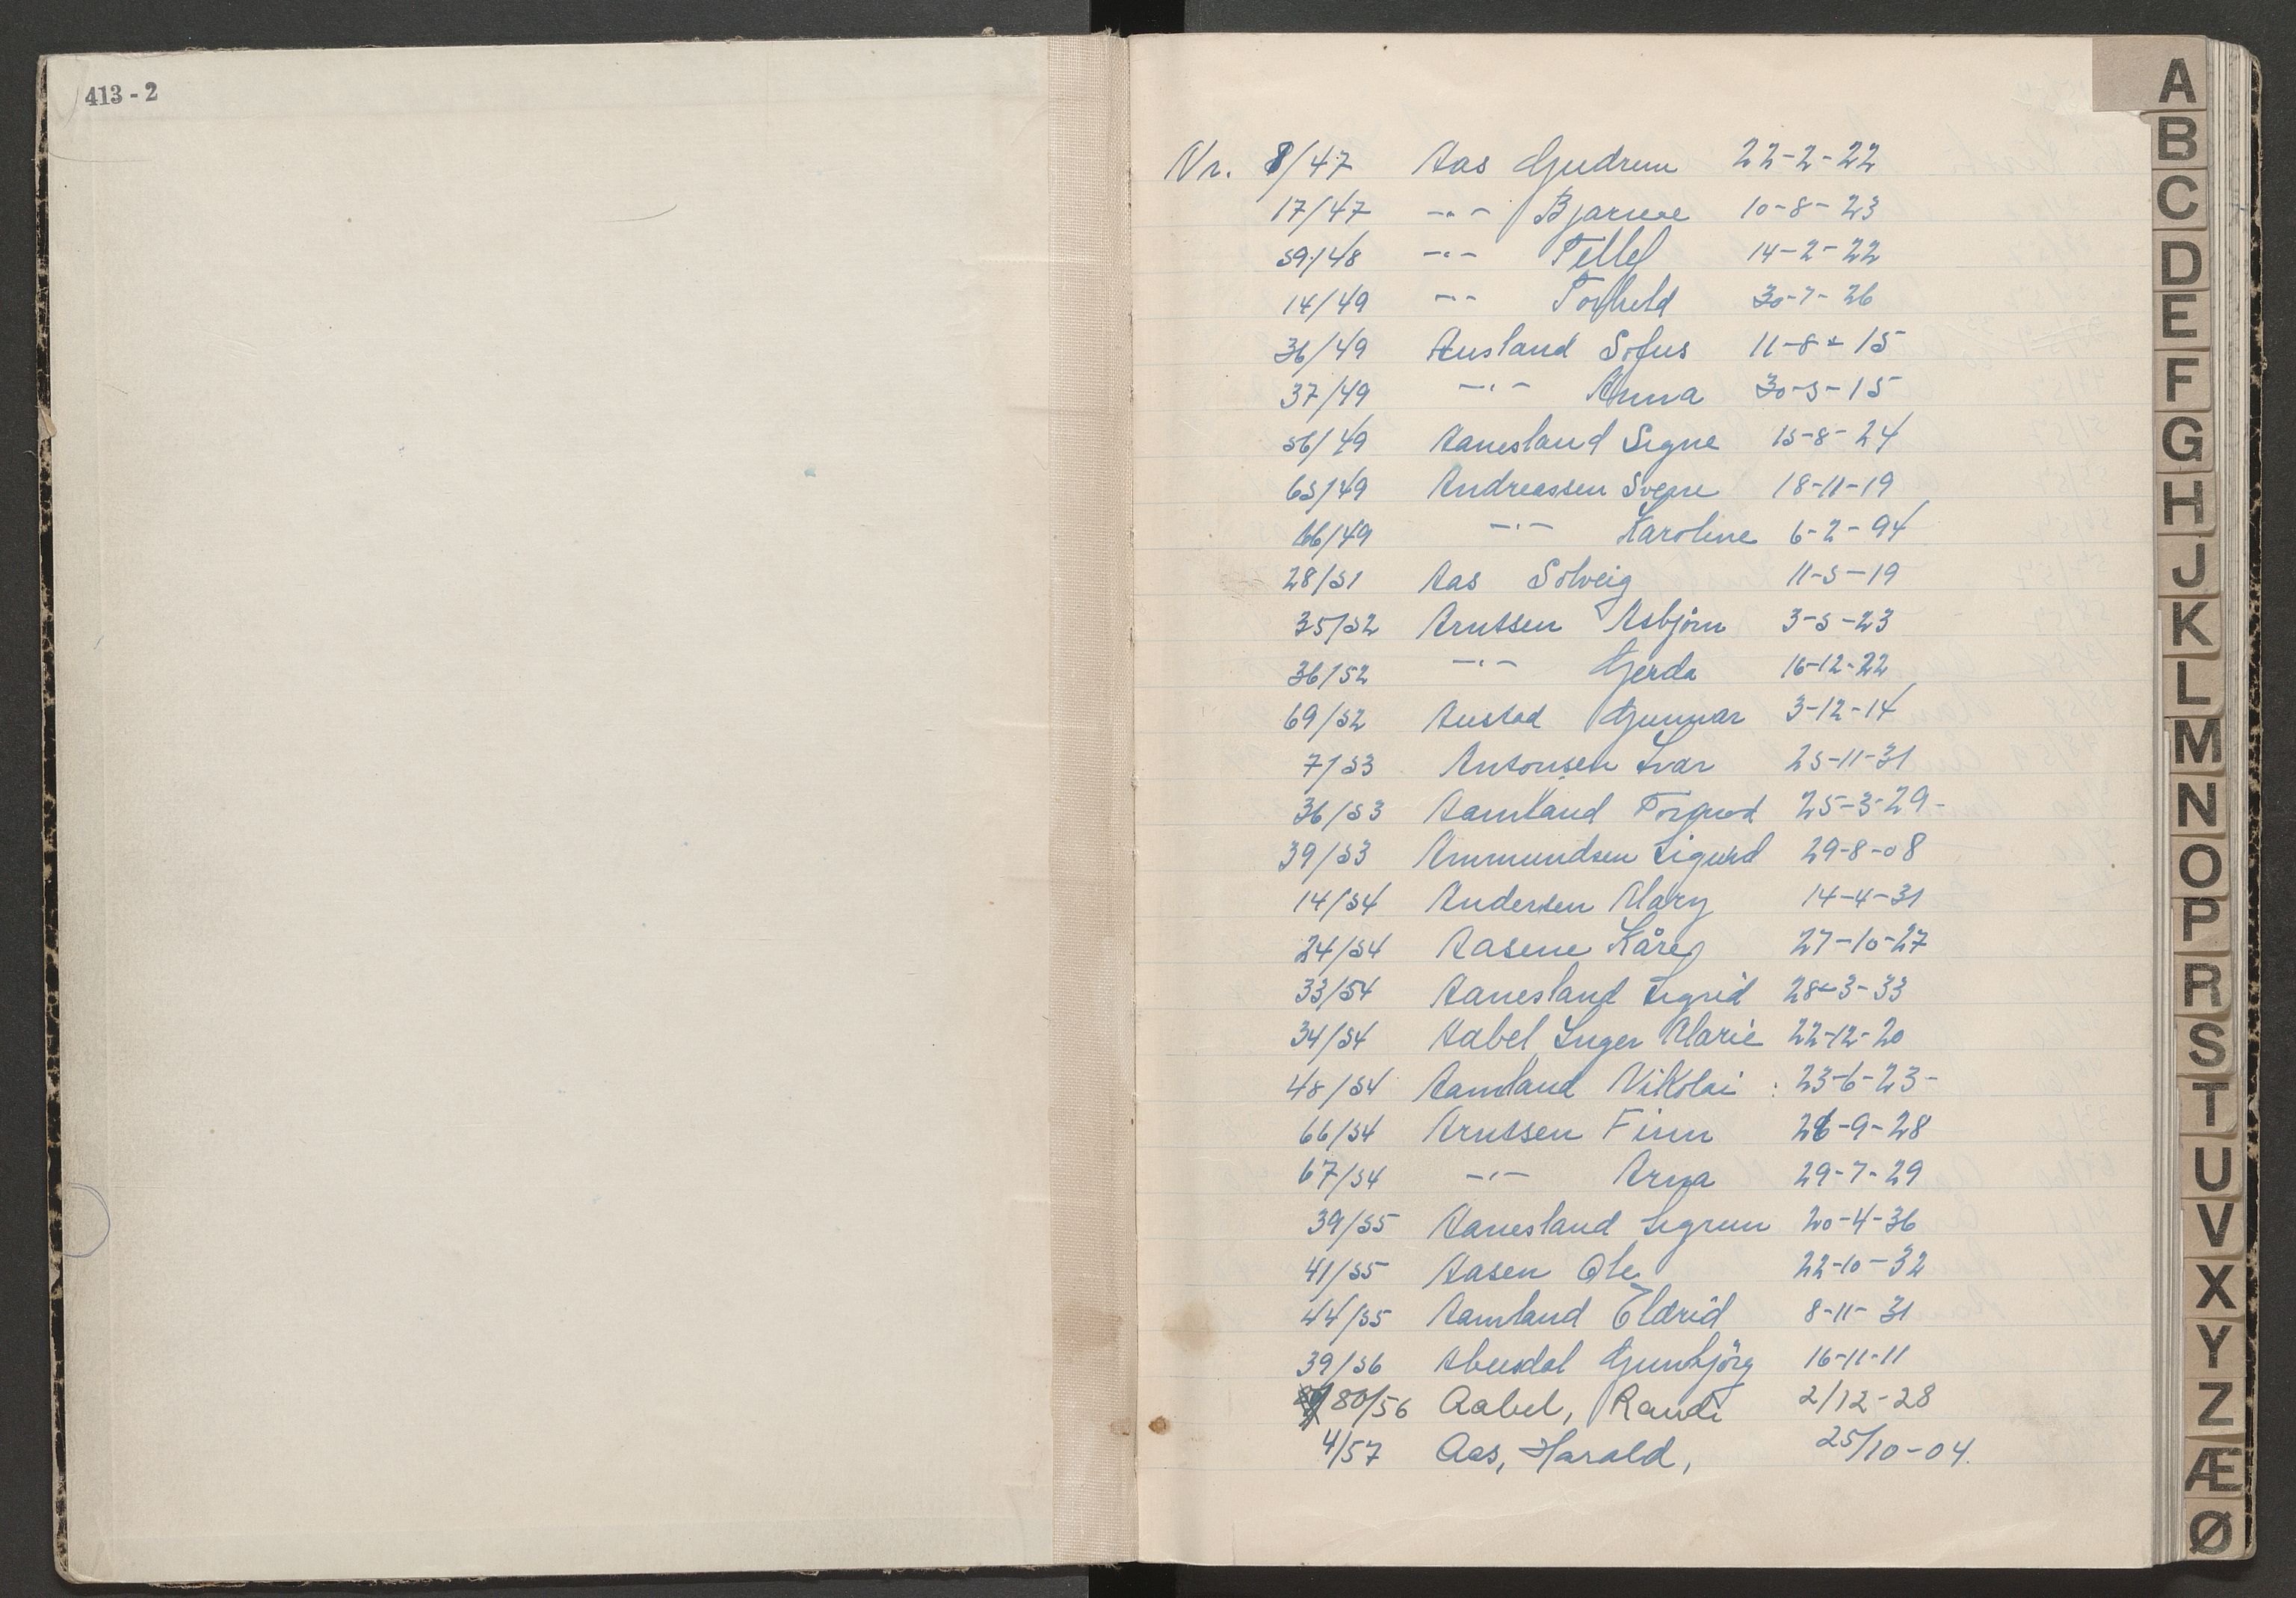 413 - 2
Nr. 8/47 Aas Gudrun 22-2-22
17/47 -"- Bjarne 10-8-23
59/48 -"- Tellef 14-2-22
14/49 -"- Torhild 30-7-26
36/49 Ausland Sofus 11-8-15
37/49 -"- Anna 30-5-15
56/49 Aanesland Signe 15-8-24
65/49 Andreassen Svein 18-11-19
66/49 -"- Karoline 6-2-94
28/51 Aas Solveig 11-5-19
35/52 Arntsen Asbjörn 3-5-23
36/52 -"- Gerda 16-12-22
69/52 Austad Gunnar 3-12-14
7/53 Antonsen Ivar 25-11-31
36/53 Aamland Torgrod 25-3-29-
39/53 Ammundsen Sigurd 29-8-08
14/54 Andersen Mary 14-4-31
24/54 Aasene Kåre 27-10-27
33/54 Aanesland Sigrid 28-3-33
34/54 Aabel Inger Marie 22-12-20
48/54 Aamland Nikolai : 23-6-23-
66/54 Arntsen Finn 26-9-28
67/54 -"- Arna 29-7-29
39/55 Aanesland Sigrun 20-4-36
41/55 Aasen Ole 22-10-32
44/55 Aamland Eldrid 8-11-31
39/56 Abusdal Gunbjörg 16-11-11
80/56 Aabel, Randi 2/12-28
4/57 Aas, Harald, 25/10-04.
A
B
C
D
E
F
G
H
J
K
L
M
N
O
P
R
S
T
U
V
X
Y
Z
Æ
Ø